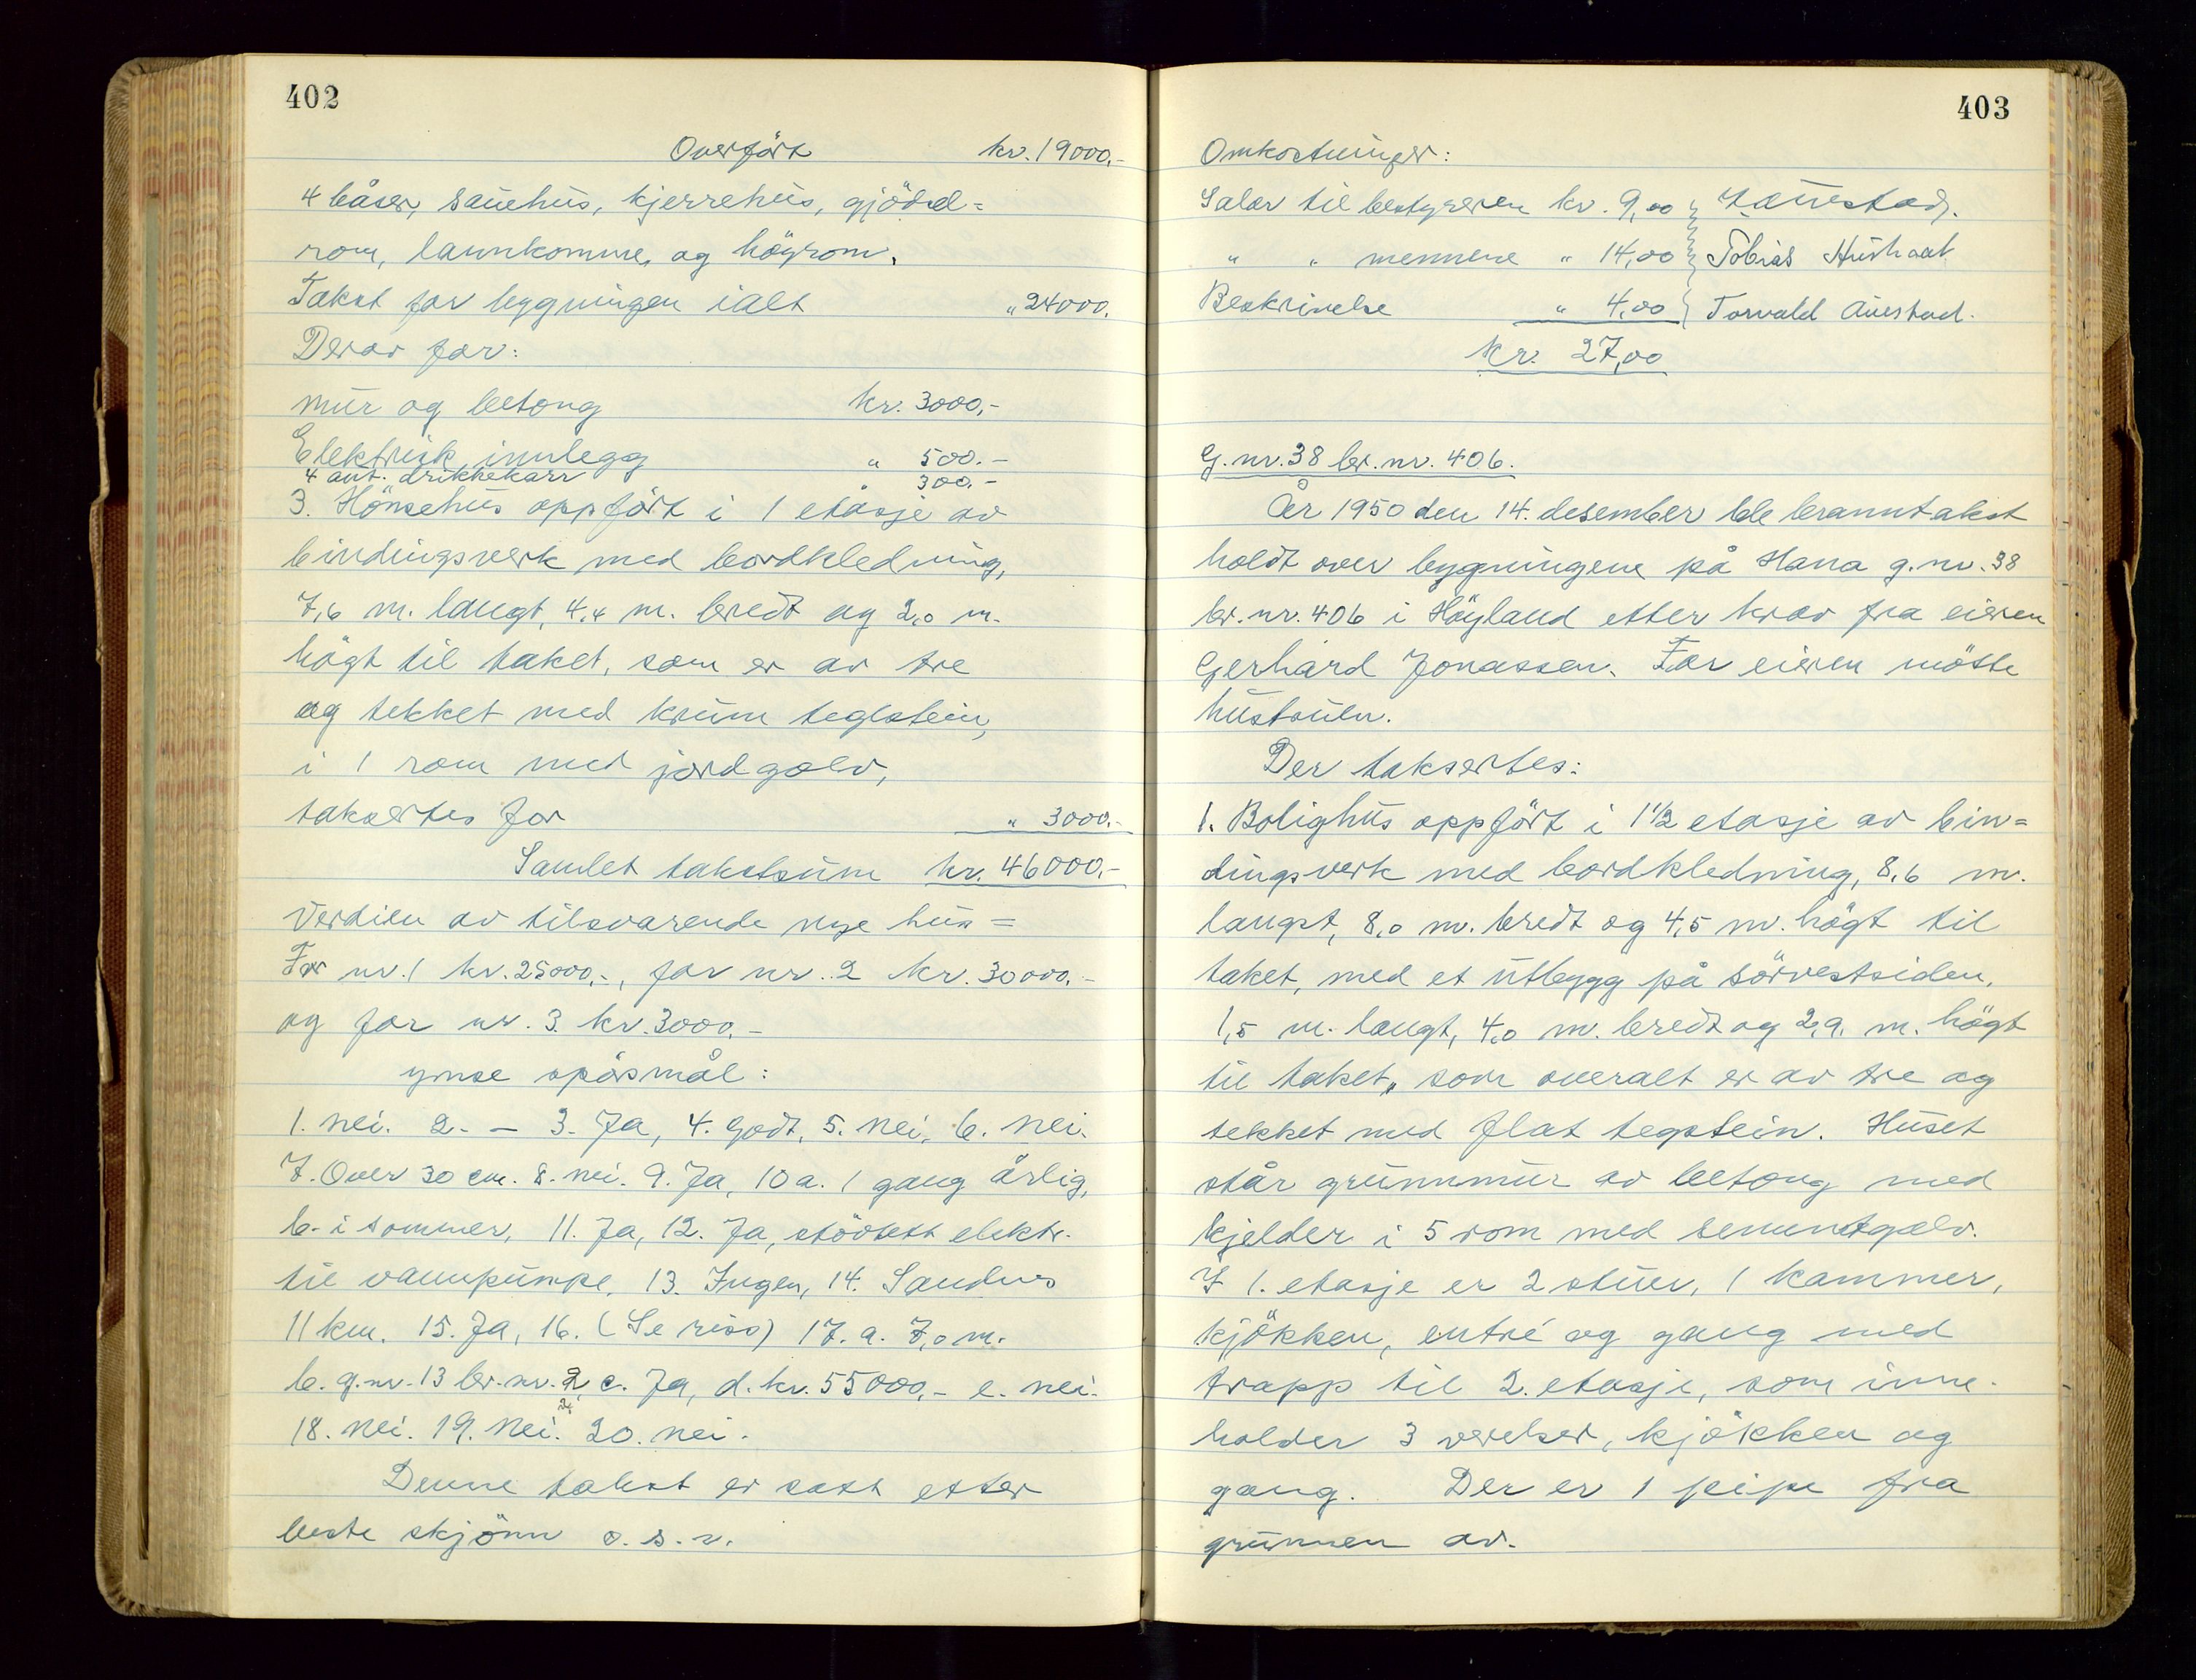 402
Overført kr. 19000,-
4 båser, sauehus, kjerrehus, gjødsel=
rom, lannkomme, og høyrom.
Takst for bygningen ialt " 24000.
Derav for:
mur og betong kr. 3000,-
Elektrisk innlegg " 500.-
4 aut. drikkekarr 300.-
3. Hønsehus oppført i 1 etasje av
bindingsverk med bordkledning,
7,6 m. langt, 4,4 m. bredt og 2,0 m.
høgt til taket, som er av tre
og tekket med krum teglstein,
i 1 rom med jordgolv,
takseres for " 3000.-
Samlet takstsum kr. 46000.-
Verdien av tilsvarende nye hus =
For nr. 1 kr. 25000,-, for nr. 2 kr. 30000.-
og for nr. 3. kr. 3000.-
ymse spørsmål:
1. nei. 2. - 3. Ja, 4. godt, 5. nei, 6. nei.
7. Over 30 cm. 8. nei. 9. Ja, 10 a. 1 gang årlig,
b. i sommer, 11. Ja, 12. Ja, støvtett elektr.
til vannpumpe, 13. Ingen, 14. Sandnes
11 km. 15. Ja, 16. (Se riss) 17. a. 7,0 m.
b. g.nr. 13 br.nr. 2, c. Ja, d. kr. 55000,- e. nei.
18. nei. 19. nei. 20. nei.
Denne takst er satt etter
beste skjønn o. s. v.
403
Omkostninger:
Salær til bestyreren kr. 9,00
" " mennene " 14,00 Tobias
Beskrivelse " 4,00 Torvald Auestad.
kr. 27,00
G. nr. 38 br. nr. 406.
År 1950 den 14. desember ble branntakst
holdt over bygningene på Hana g. nr. 38
br. nr. 406 i Høyland etter krav fra eieren
Gerhard Jonassen. For eieren møtte
hustruen.
Der taksertes:
1. Bolighus oppført i 1 1/2 etasje av bin=
dingsverk med bordkledning, 8,6 m.
langt, 8,0 m. bredt og 4,5 m. høgt til
taket, med et utbygg på sørvestsiden,
1,5 m. langt, 4,0 m. bredt og 2,9. m. høgt
til taket, som overalt er av tre og
tekket med flat tegstein. Huset
står grunnmur av betong med
kjelder i 5 rom med sementgolv.
I 1. etasje er 2 stuer, 1 kammer,
kjøkken, entré og gang med
trapp til 2. etasje, som inne-
holder 3 verelser, kjøkken og
gang. Der er 1 pipe fra
grunnen av.